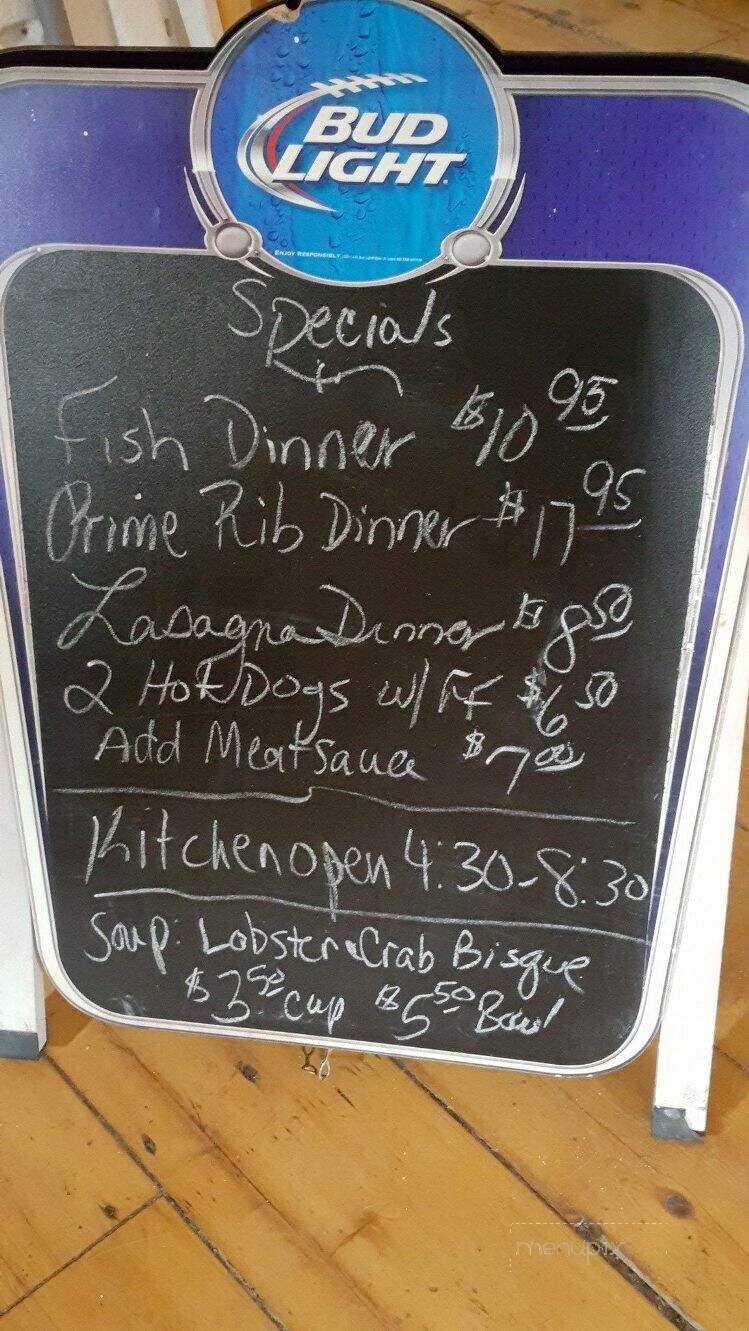 BUD
LIGHT
ENJOY RESPONSIBLY
Specials
Fish Dinner $10 95
Prime Rib Dinner $17 95
Lasagna Dinner $8 50
2 Hot Dogs w/ FF $6 50
Add Meatsauce $7 00
Kitchen open 4:30-8:30
Soup: Lobster & Crab Bisque
$3 50 cup $5 50 Bowl
menupix